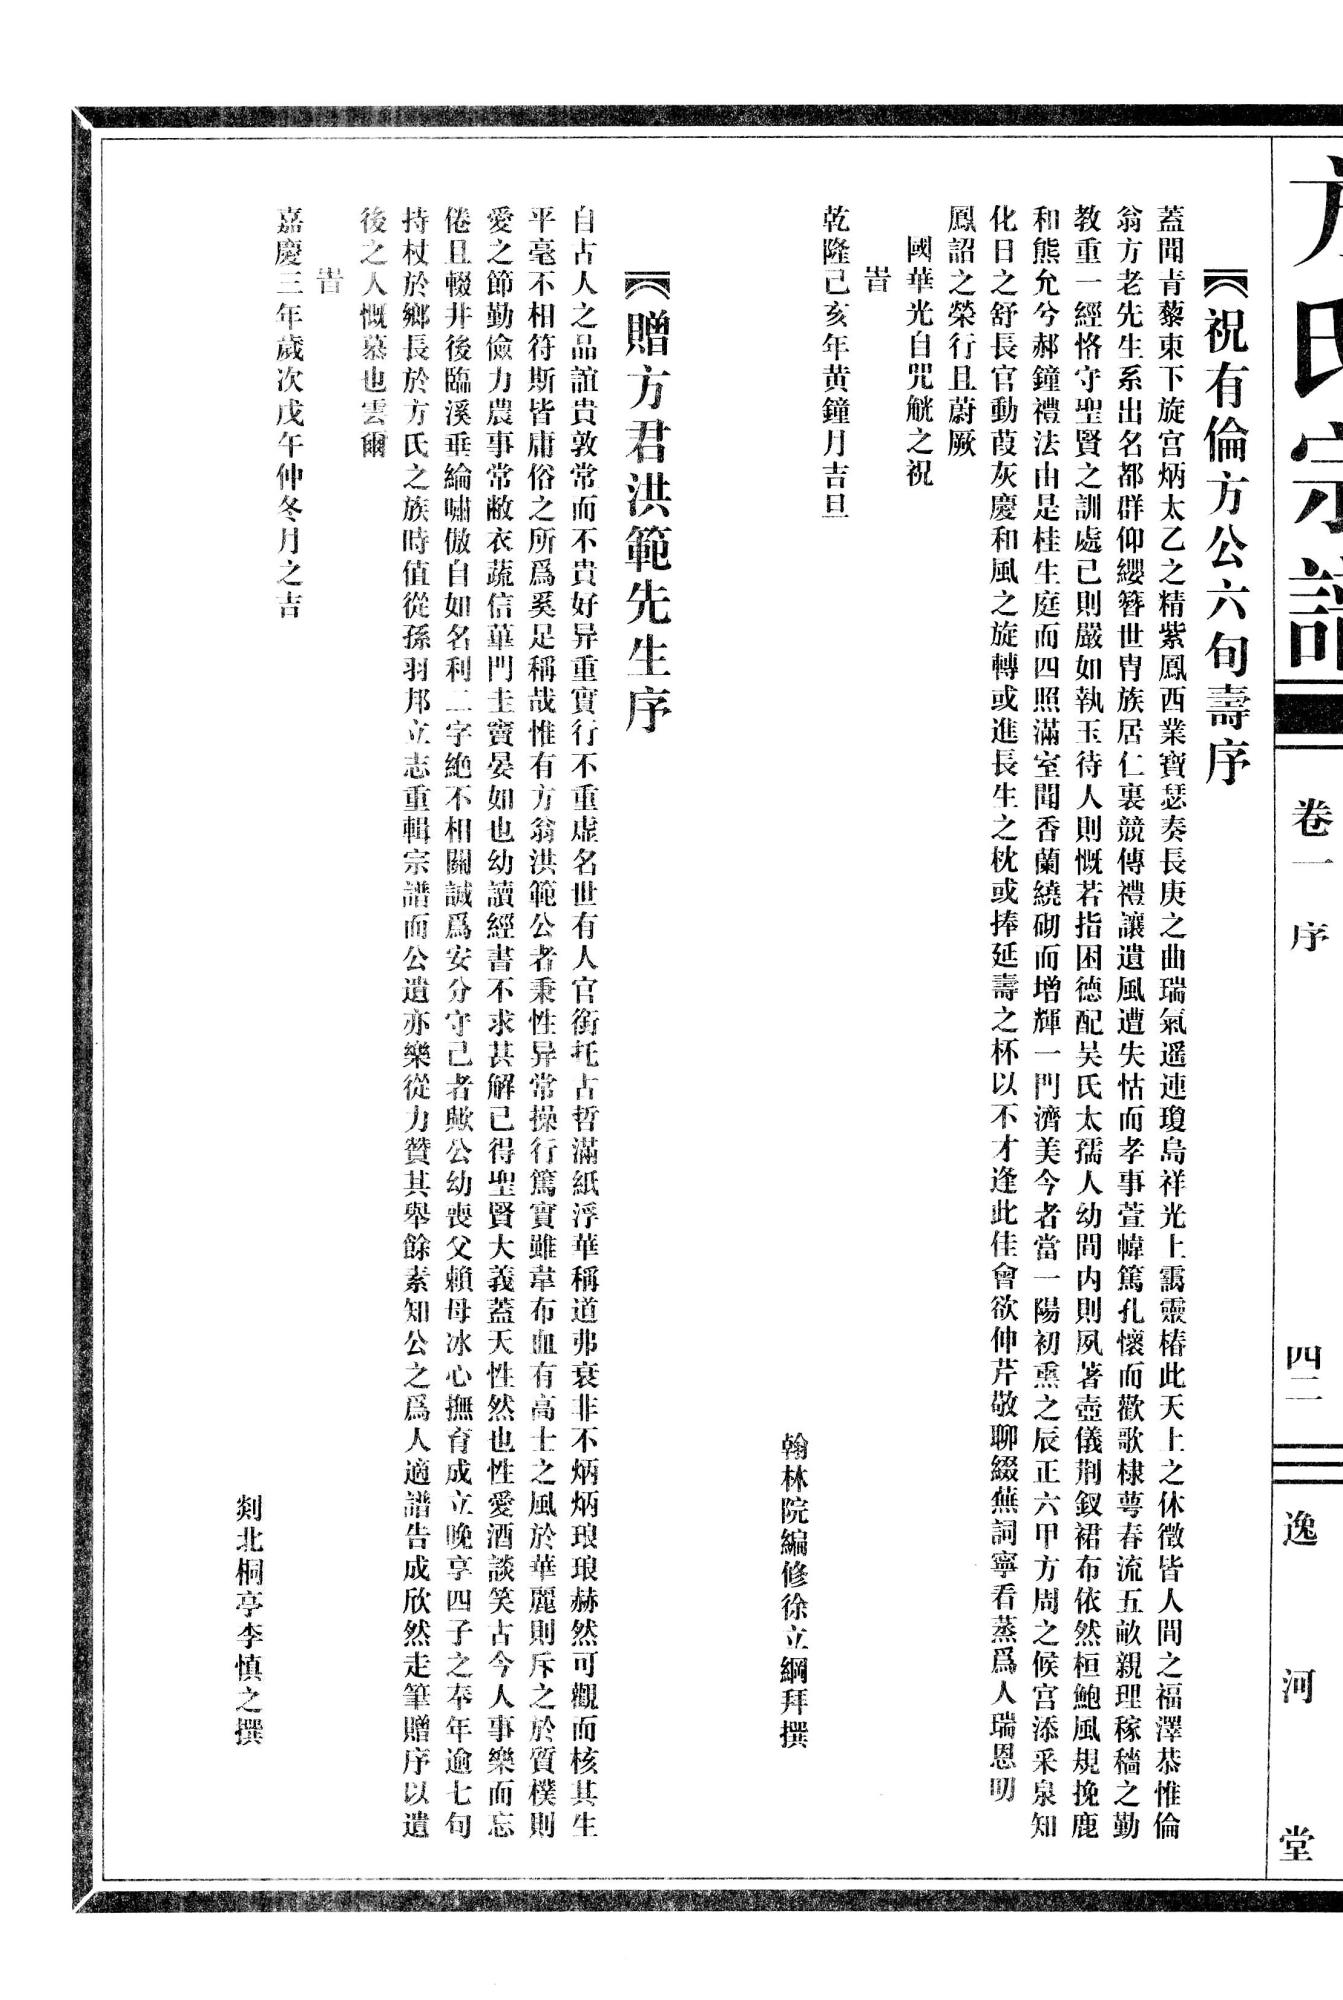 方氏宗譜
卷一 序
四二
逸河堂
祝有倫方公六旬壽序
蓋聞青藜東下旋宮炳太乙之精紫鳳西業寶瑟奏長庚之曲瑞氣遥連瓊島祥光上靄靈椿此天上之休徵皆人間之福澤恭惟倫
翁方老先生系出名都群仰纓簪世胄族居仁裏競傳禮讓遺風遭失怙而孝事萱幃篤孔懷而歡歌棣萼春流五畝親理稼穡之勤
教重一經恪守聖賢之訓處己則嚴如執玉待人則慨若指困德配吴氏太孺人幼閑内則夙著壺儀荆釵裙布依然桓鮑風規挽鹿
和熊允兮郝鐘禮法由是桂生庭而四照滿室聞香蘭繞砌而增輝一門濟美今者當一陽初熏之辰正六甲方周之候宫添采泉知
化日之舒長官動葭灰慶和風之旋轉或進長生之枕或捧延壽之杯以不才逢此佳會欲伸芹敬聊綴蕪詞寧看蒸爲人瑞恩叨
鳳詔之榮行且蔚厥
國華光自咒觥之祝
旹
乾隆己亥年黄鐘月吉旦
翰林院編修徐立綱拜撰
贈方君洪範先生序
自古人之品誼貴敦常而不貴好异重實行不重虚名世有人官銜托古哲滿紙浮華稱道弗衰非不炳炳琅琅赫然可觀而核其生
平毫不相符斯皆庸俗之所爲奚足稱哉惟有方翁洪範公者秉性异常操行篤實雖韋布血有高士之風於華麗則斥之於質樸則
愛之節勤儉力農事常敝衣蔬信蓽門圭竇晏如也幼讀經書不求甚解已得聖賢大義蓋天性然也性愛酒談笑古今人事樂而忘
倦且輟井後臨溪垂綸嘯傲自如名利二字絶不相關誠爲安分守己者歟公幼喪父賴母冰心撫育成立晚享四子之奉年逾七旬
持杖於鄉長於方氏之族時值從孫羽邦立志重輯宗譜而公遺亦樂從力贊其舉餘素知公之爲人適譜告成欣然走筆贈序以遺
後之人慨慕也雲爾
旹
嘉慶三年歲次戊午仲冬月之吉
剡北桐亭李慎之撰